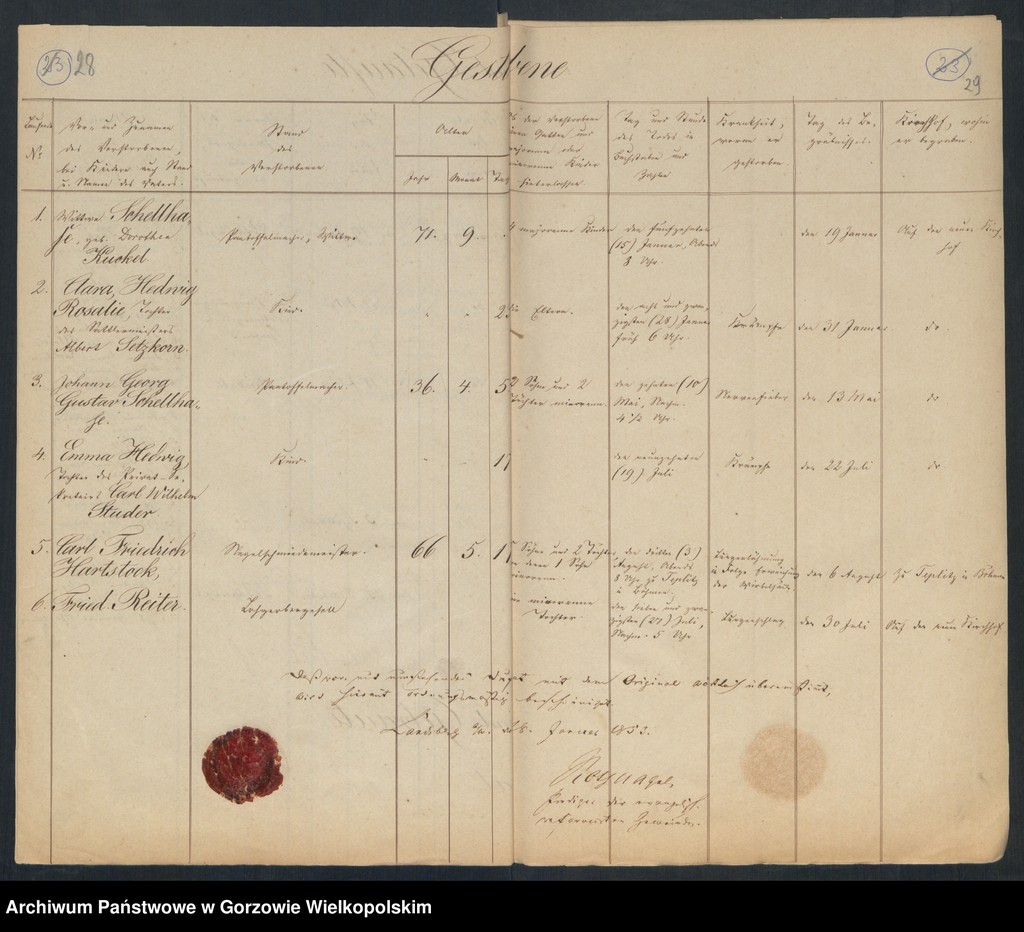 23 28
Gestorbene
23
29
Laufende
Nr
Vor- und Zuname
des Verstorbenen,
bei Kindern auch Stand
u. Name des Vaters.
Stand
des
Verstorbenen
Alter
Jahr
Monat
Tag
Tag und Stunde
des Todes in
Buchstaben und
Zahlen
Krankheit,
woran er
gestorben
Tag des Be-
gräbnisses.
Kirchhof, wohin
er begraben.
1. Wittwe Schellha-
se, geb. Dorothea
Kuckel
Pantoffelmacher, Wittwe
71. 9.
4 majorenne Kinder
den fünfzehnten
(15) Januar, Abends
8 Uhr.
den 19 Januar
Auf den neuen Kirch-
hof
2. Clara, Hedwig
Rosalie, Tochter
des Sattlermeisters
Albert Setzkorn.
Kind.
die Eltern.
den acht und zwan-
zigsten (28) Januar
früh 6 Uhr.
Krämpfe
den 31 Januar
do.
3. Johann Georg
Gustav Schellha-
se.
Pantoffelmacher.
36. 4. 5
2 Söhne und 2
Töchter minorenn.
den zehnten (10)
Mai, Nachm.
4 1/2 Uhr.
Nervenfieber
den 13 Mai
do
4. Emma Hedwig,
Tochter des Privat-Se-
kretairs Carl Wilhelm
Studer.
Kind.
den neunzehnten
(19) Juli
Krämpfe
den 22 Juli
do
5. Carl Friedrich
Hartstock,
Nagelschmiedemeister.
66 5.
Söhne und 2 Töchter,
den dritten (3)
August, Abends
8 Uhr zu Teplitz
in Böhmen.
in Folge Erweichung
den 6 August
Zu Teplitz in Böhmen
6. Fried. Reiter.
Lohgerbergesell
minorenne
Tochter.
den sieben und zwan-
zigsten (27) Juli,
Nachm. 5 Uhr
den 30 Juli
Auf den neuen Kirchhof.
mit dem Original wörtlich übereinstimmt,
wird hiermit ordnungsmäßig bescheinigt.
Landsberg a/W. Januar 1853.
Prediger der evangelisch
reformirten Gemeinde.
Archiwum Państwowe w Gorzowie Wielkopolskim